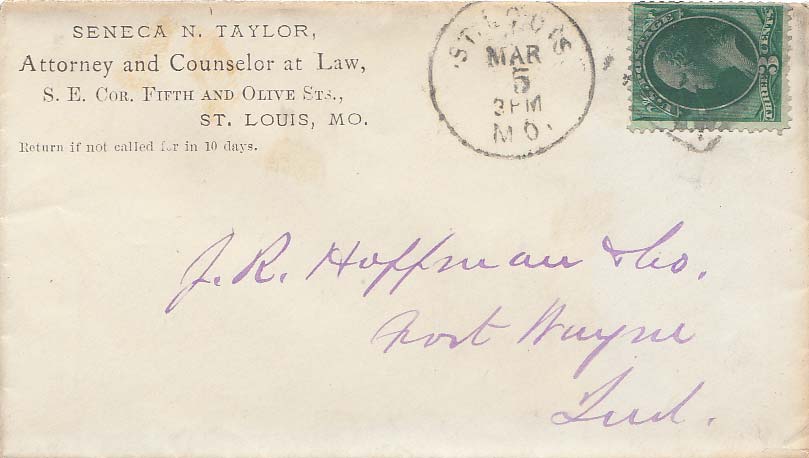 SENECA N. TAYLOR,
Attorney and Counselor at Law,
S. E. COR. FIFTH AND OLIVE STS.,
ST. LOUIS, MO.
Return if not called for in 10 days.
ST. LOUIS
MAR
5
3 PM
MO.
U.S. POSTAGE
THREE 3 CENTS
J. R. Hoffman & Co.
Fort Wayne
Ind.